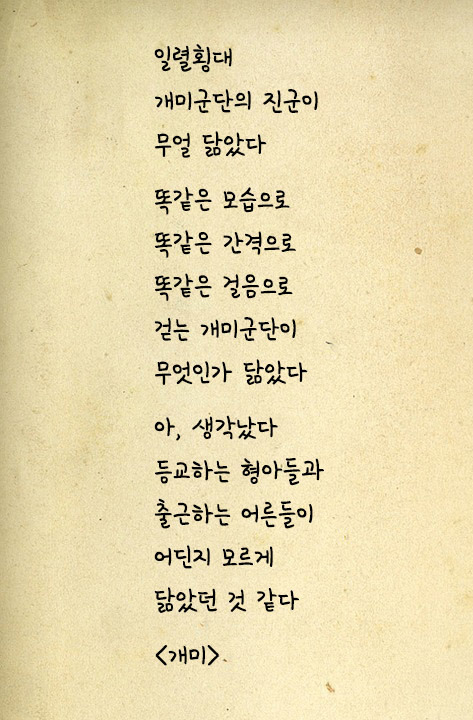 일렬횡대
개미군단의 진군이
무얼 닮았다
똑같은 모습으로
똑같은 간격으로
똑같은 걸음으로
걷는 개미군단이
무엇인가 닮았다
아, 생각났다
등교하는 형아들과
출근하는 어른들이
어딘지 모르게
닮았던 것 같다
<개미>